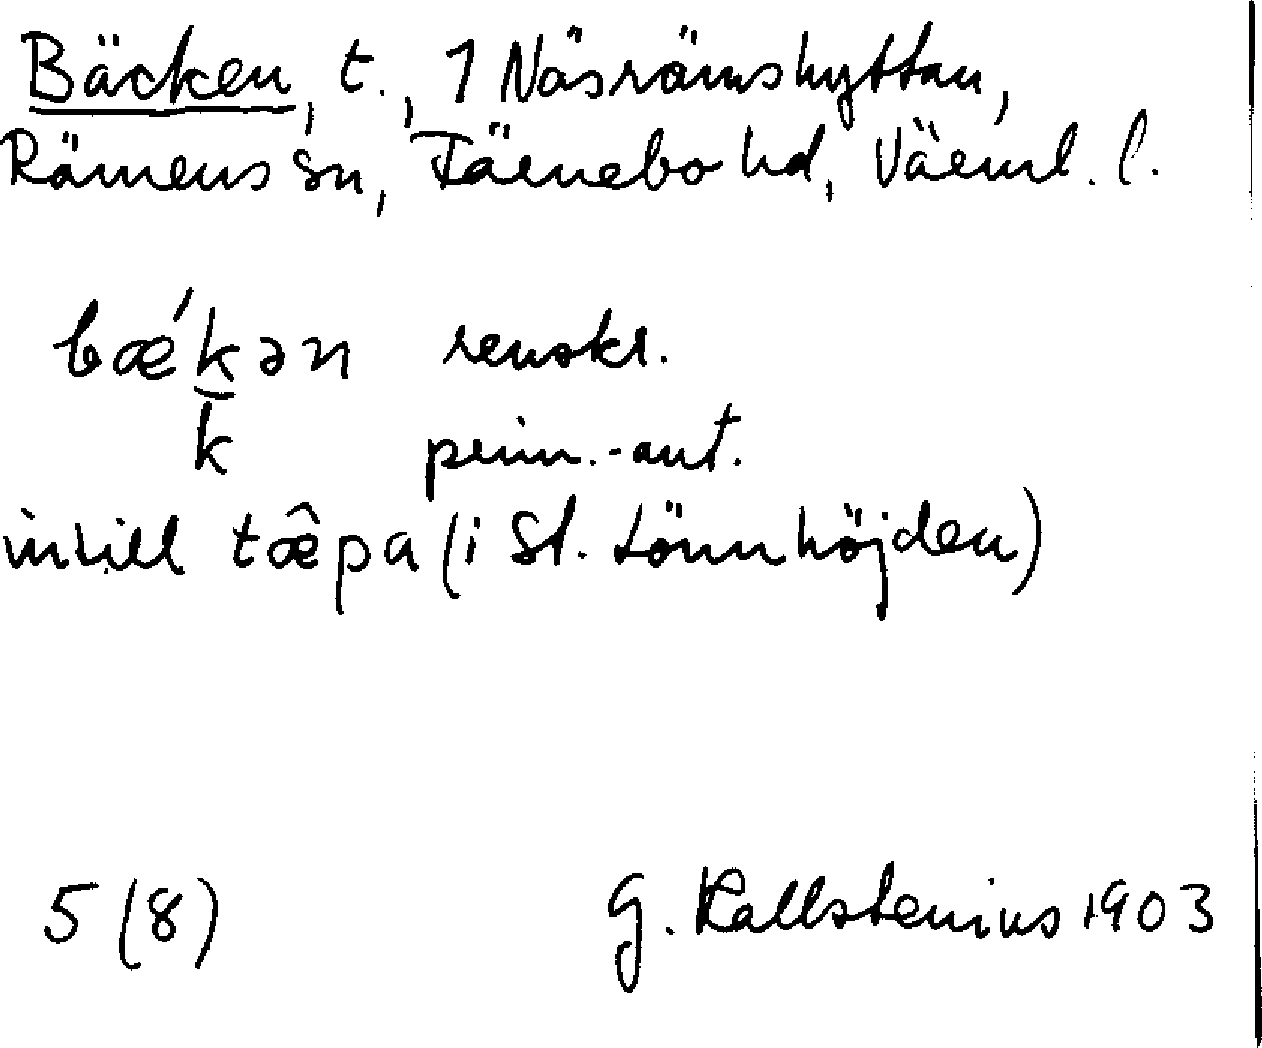 Bäcken, t., 1 Näsrämshyttan,
Rämens sn, Färnebo hd, Värml. l.
bæ´k̲ən renskr.
k prim.-ant.
intill tæ̂pa (i St. Lönnhöjden)
5 (8) G. Kallstenius 1903